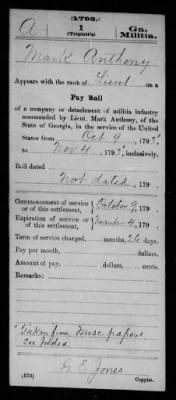 1793.
A | 1 | Ga.
(Triplett's) | Militia.
Mark Anthony
Appears with the rank of Lieut on a
Pay Roll
of a company or detachment of militia infantry
commanded by Lieut. Mark Anthony, of the
State of Georgia, in the service of the United
States from Oct 9, 179 3,
to Nov 4, 179 3, inclusively.
Roll dated
Not dated, 179 .
Commencement of service or of this settlement, October 9, 179 .
Expiration of service or of this settlement, November 4, 179 .
Term of service charged, months, 26 days.
Pay per month, dollars.
Amount of pay, dollars, cents.
Remarks:
Taken from Misc. papers.
See Jacket
G. E. Jones
(572) Copyist.